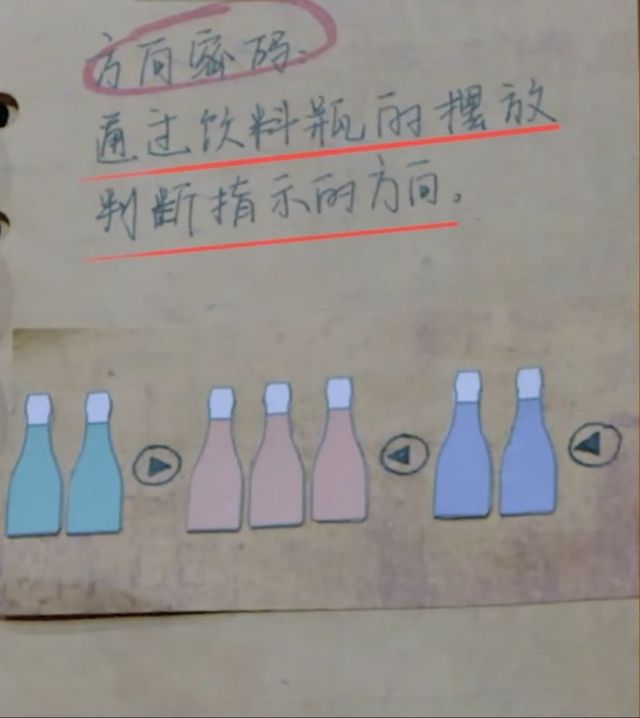 方向密码:
通过饮料瓶的摆放
判断指示的方向。